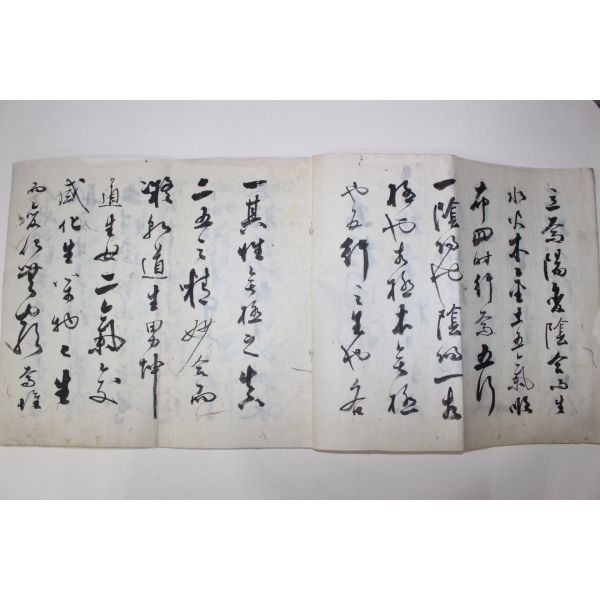 立焉陽變陰合而生
水火木金土五氣順
布四時行焉五行
一陰陽也陰陽一太
極也太極本無極
也五行之生也各
一其性無極之真
二五之精妙合而
凝乾道生男坤
道生女二氣交
感化生萬物々生
而變化無窮焉惟